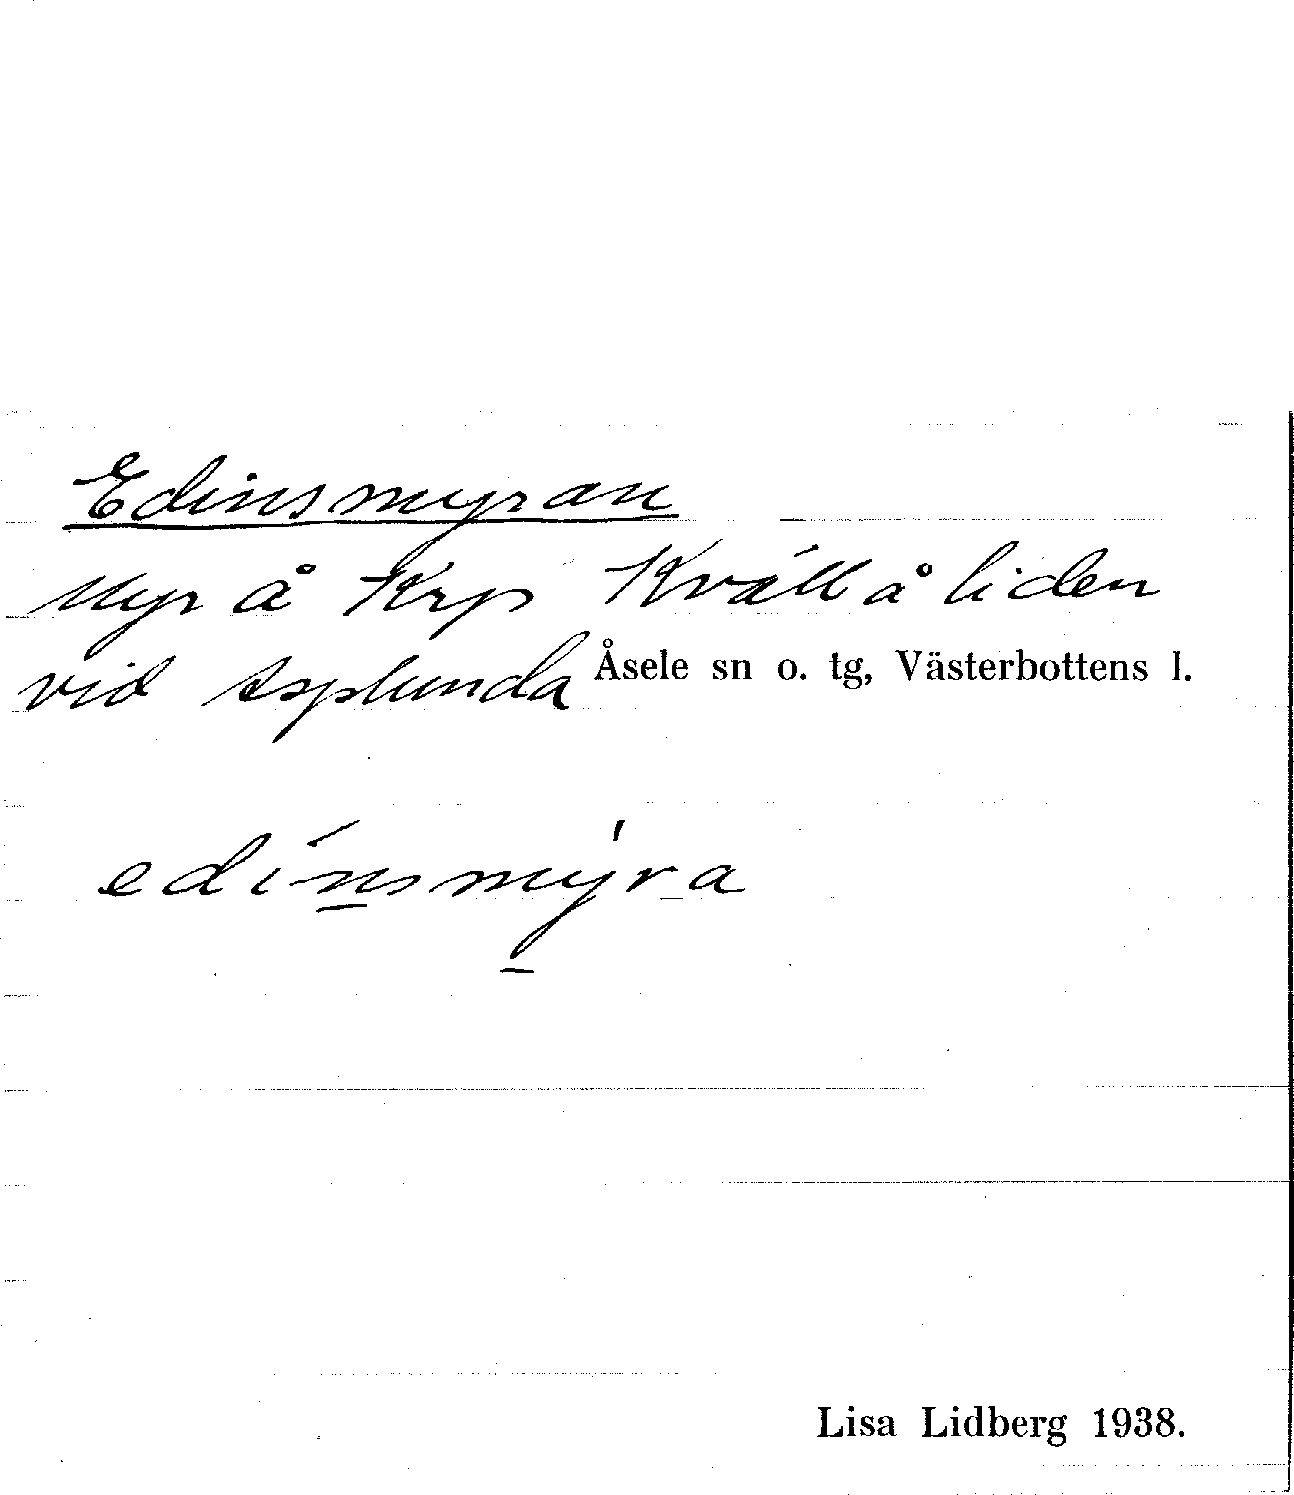 Edinsmyran
Myr å Krp Kvällåliden
vid Asplunda Åsele sn o. tg, Västerbottens l.
edínsmy̍ra
Lisa Lidberg 1938.